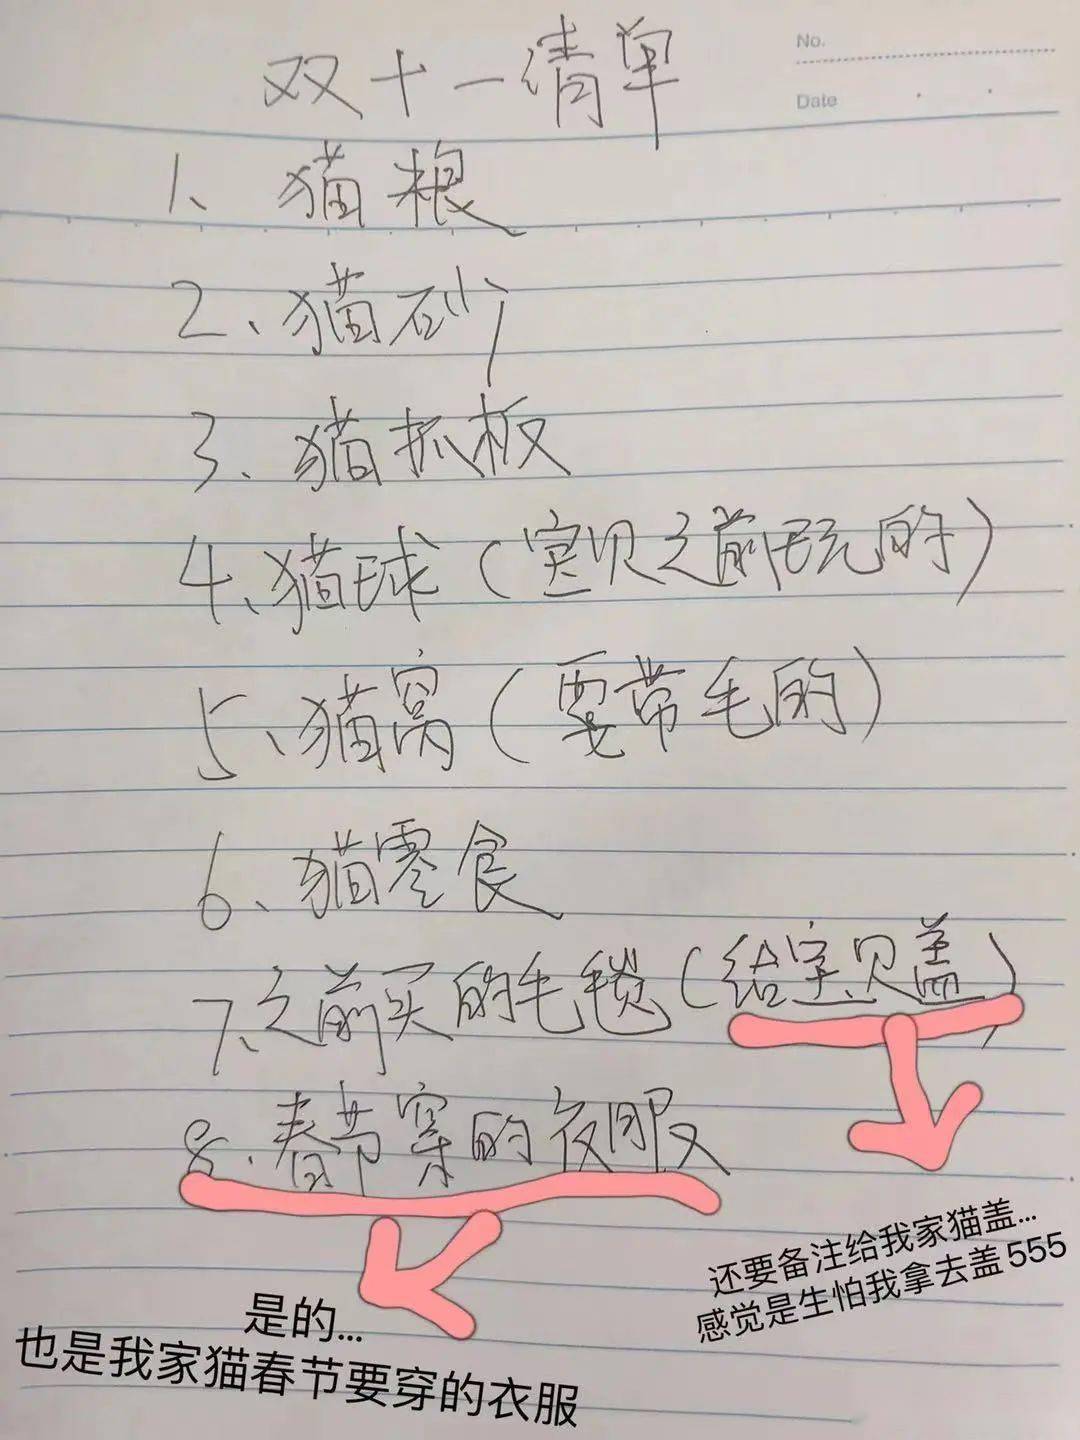 No.
Date
双十一清单
1、猫粮
2、猫砂
3、猫抓板
4、猫球（宝贝之前玩的）
5、猫窝（要带毛的）
6、猫零食
7、之前买的毛毯（给宝贝盖）
8、春节穿的衣服
还要备注给我家猫盖...
感觉是生怕我拿去盖555
是的...
也是我家猫春节要穿的衣服